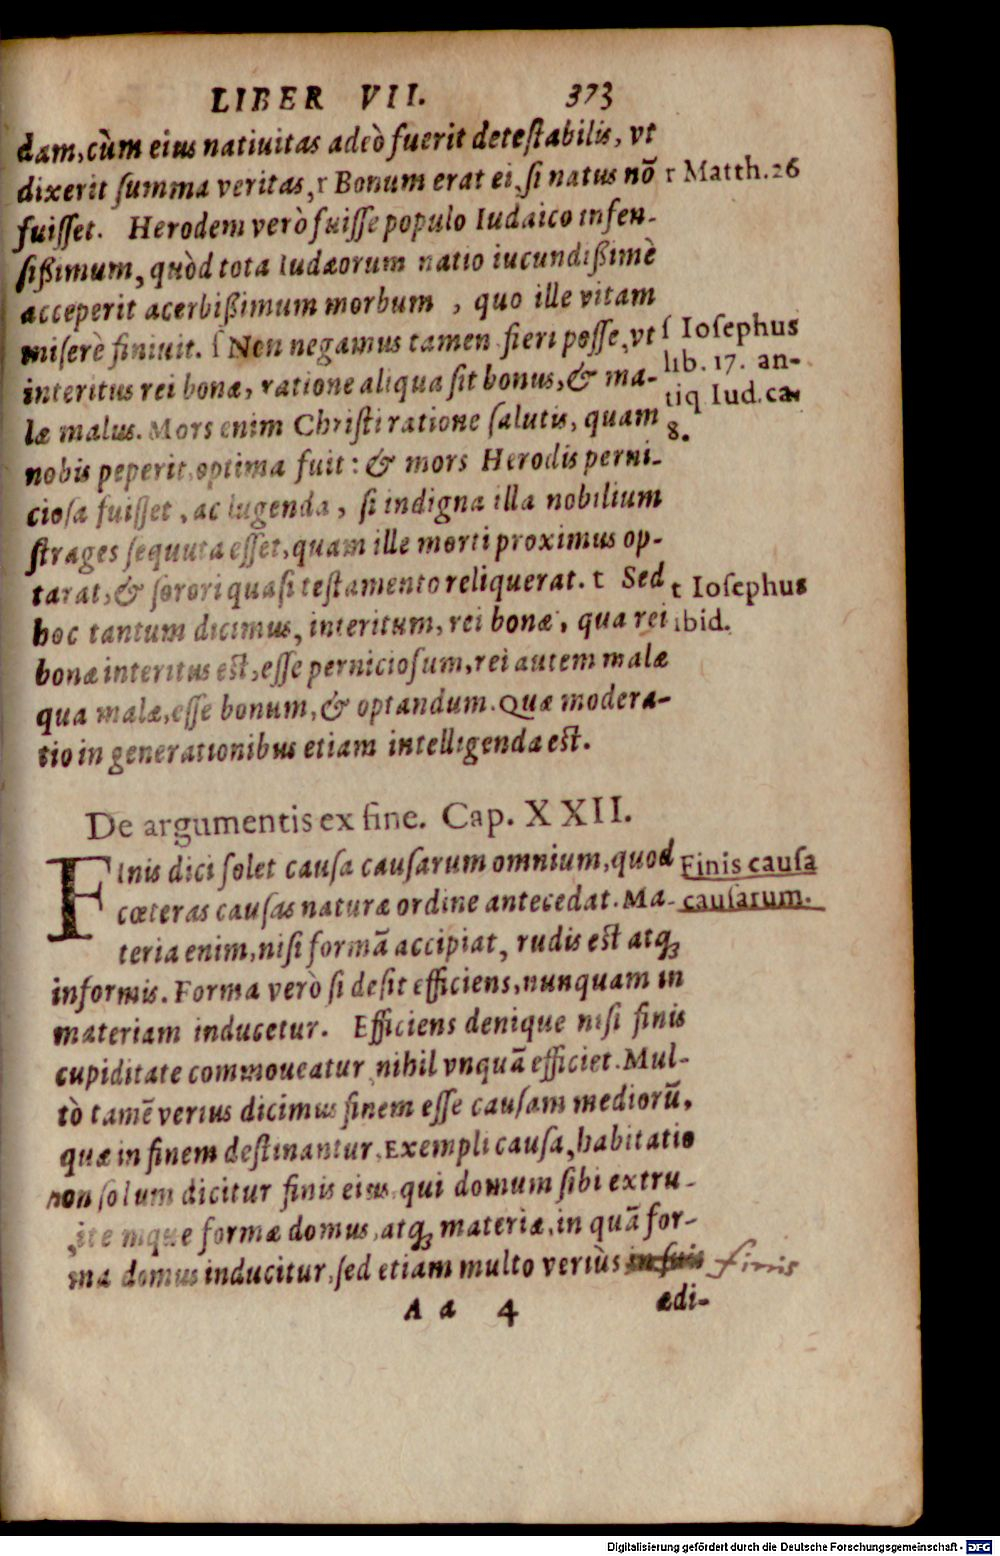 LIBER VII. 373
dam, cùm eius natiuitas adeò fuerit detestabilis, vt
dixerit summa veritas, r Bonum erat ei, si natus nõ
r Matth. 26
fuisset. Herodem verò fuisse populo Iudaico infen-
sißimum, quòd tota Iudæorum natio iucundißimè
acceperit acerbißimum morbum , quo ille vitam
miserè finiuit. ſ Non negamus tamen fieri posse, vt
ſ Iosephus
lib. 17. an-
tiq Iud. ca.
8.
interitus rei bonæ, ratione aliqua sit bonus, & ma-
læ malus. Mors enim Christi ratione salutis, quam
nobis peperit, optima fuit: & mors Herodis perni-
ciosa fuisset, ac lugenda, si indigna illa nobilium
strages sequuta esset, quam ille morti proximus op-
tarat, & sorori quasi testamento reliquerat. t Sed
t Iosephus
ibid.
hoc tantum dicimus, interitum, rei bonæ, qua rei
bonæ interitus est, esse perniciosum, rei autem malæ
qua malæ, esse bonum, & optandum. Quæ modera-
tio in generationibus etiam intelligenda est.
De argumentis ex fine. Cap. XXII.
FInis dici solet causa causarum omnium, quod
Finis causa
causarum.
cæteras causas naturæ ordine antecedat. Ma-
teria enim, nisi formã accipiat, rudis est atq;
informis. Forma verò si desit efficiens, nunquam in
materiam inducetur. Efficiens denique nisi finis
cupiditate commoueatur, nihil vnquã efficiet. Mul-
tò tamẽ verius dicimus finem esse causam mediorũ,
quæ in finem destinantur. Exempli causa, habitatio
non solum dicitur finis eius, qui domum sibi extru-
,ite mque formæ domus, atq; materiæ, in quã for-
ma domus inducitur, sed etiam multo veriùs in suis finis
Aa 4 ædi-
Digitalisierung gefördert durch die Deutsche Forschungsgemeinschaft - DFG